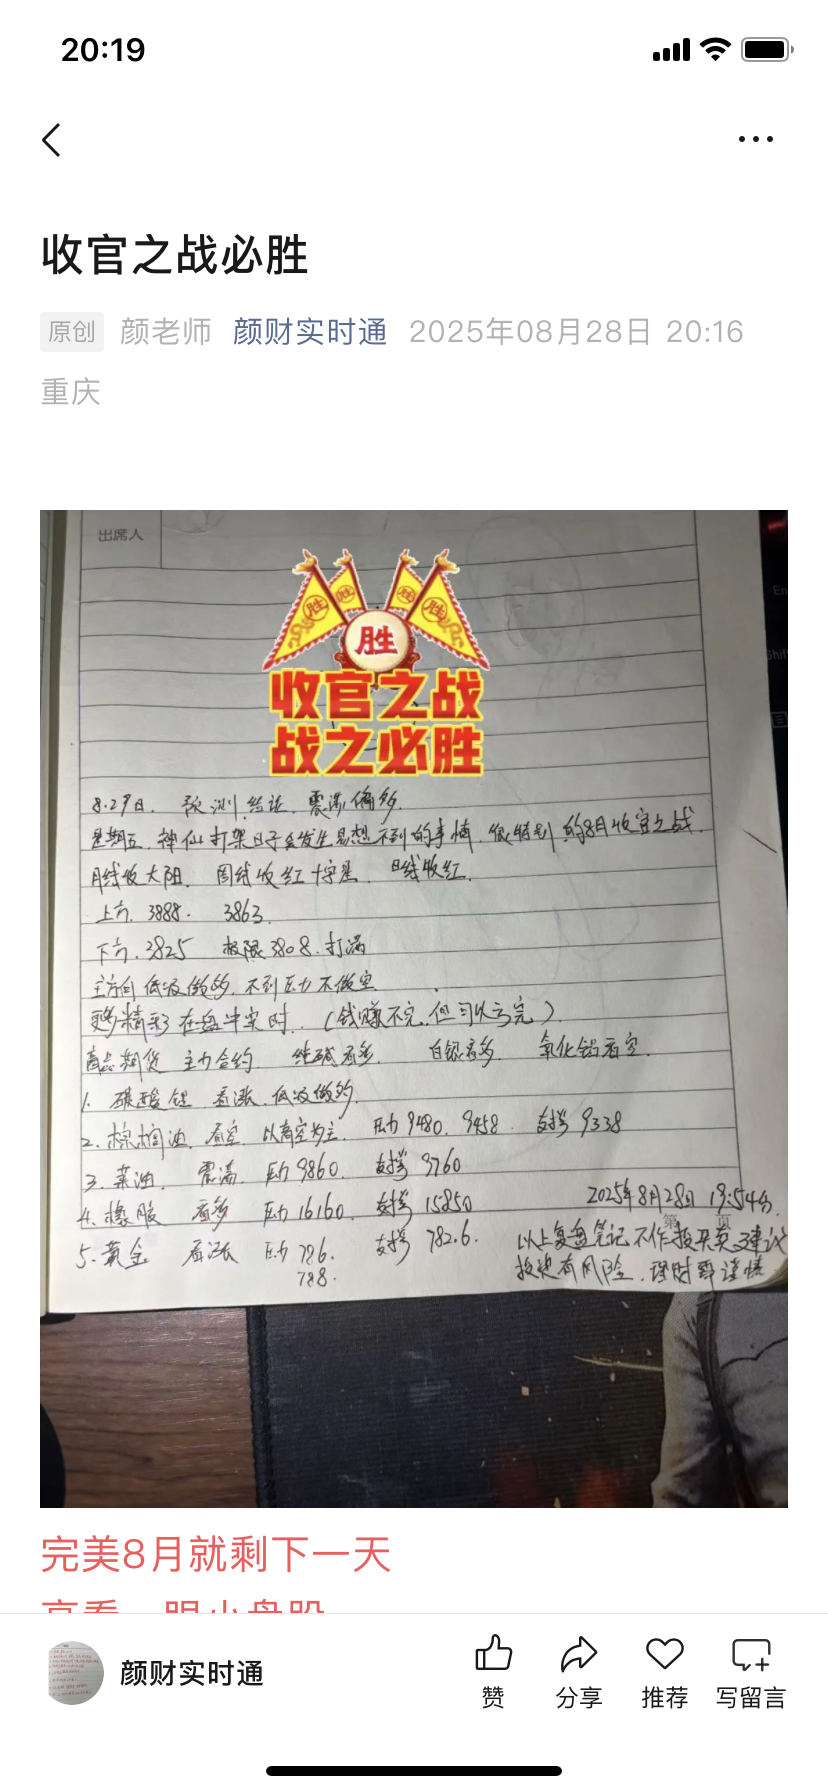 20:19
收官之战必胜
原创 颜老师 颜财实时通 2025年08月28日 20:16
重庆
出席人
胜 胜 胜 胜
胜
收官之战
战之必胜
8.29日. 预测.结论.震荡偏多
星期五.神仙打架日子会发生易想不到的事情.很特别的8月收官之战.
月线收大阳. 周线收红十字星. 日线收红.
上方.3888. 3863.
下方.3825 极限3808.打满
主方向低吸做多.不到压力不做空
更多精彩在盘中实时.(钱赚不完.但可以亏完).
商品期货 主力合约 纯碱看多. 白银看多. 氧化铝看空.
1. 碳酸锂 看涨.低吸做多.
2. 棕榈油. 看空 以高空为主. 压力9480. 9458. 支撑9338
3. 菜油. 震荡. 压力9860. 支撑9760
4. 橡胶 看多 压力16160. 支撑15850
2025年8月28日 19:54分.
第 页
5. 黄金 看涨 压力786. 支撑782.6.
788.
以上复盘笔记不作投买卖建议
投资有风险.理财要谨慎
完美8月就剩下一天
颜财实时通
赞 分享 推荐 写留言